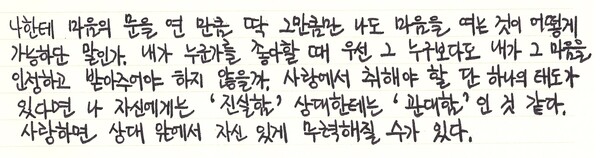 나한테 마음의 문을 연 만큼 딱 그만큼만 나도 마음을 여는 것이 어떻게
가능하단 말인가. 내가 누군가를 좋아할 때 우선 그 누구보다도 내가 그 마음을
인정하고 받아주어야 하지 않을까. 사랑에서 취해야 할 단 하나의 태도가
있다면 나 자신에게는 '진실함' 상대한테는 '관대함' 인 것 같다.
사랑하면 상대 앞에서 자신 있게 무력해질 수가 있다.